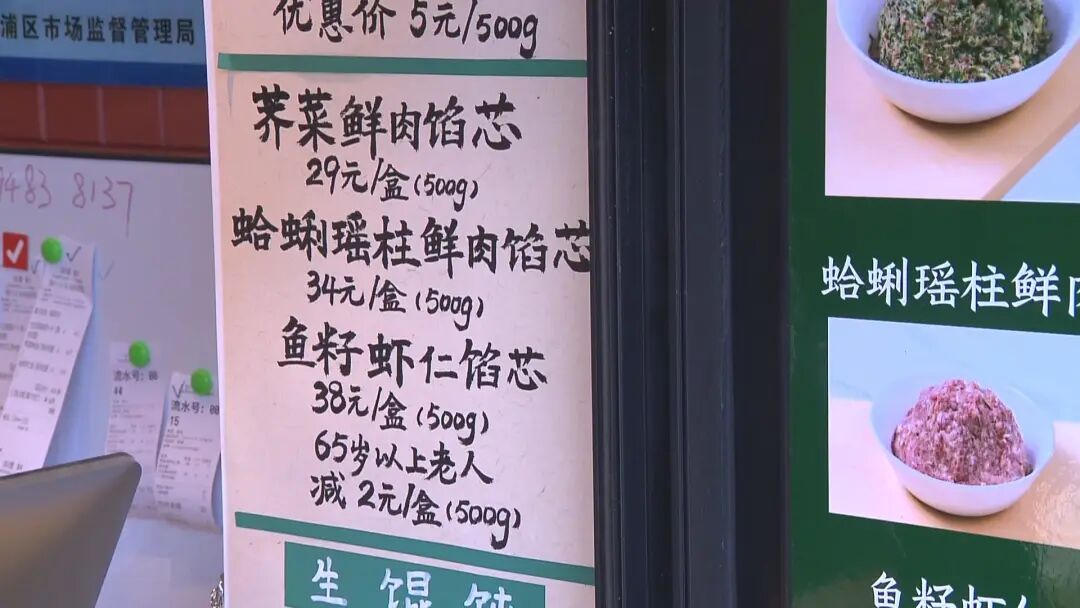 浦区市场监督管理局
优惠价 5元/500g
荠菜鲜肉馅芯
29元/盒(500g)
蛤蜊瑶柱鲜肉馅芯
34元/盒(500g)
鱼籽虾仁馅芯
38元/盒(500g)
65岁以上老人
减 2元/盒(500g)
生馄饨
483 8137
流水号:
44
流水号:
15
蛤蜊瑶柱鲜肉
鱼籽虾仁